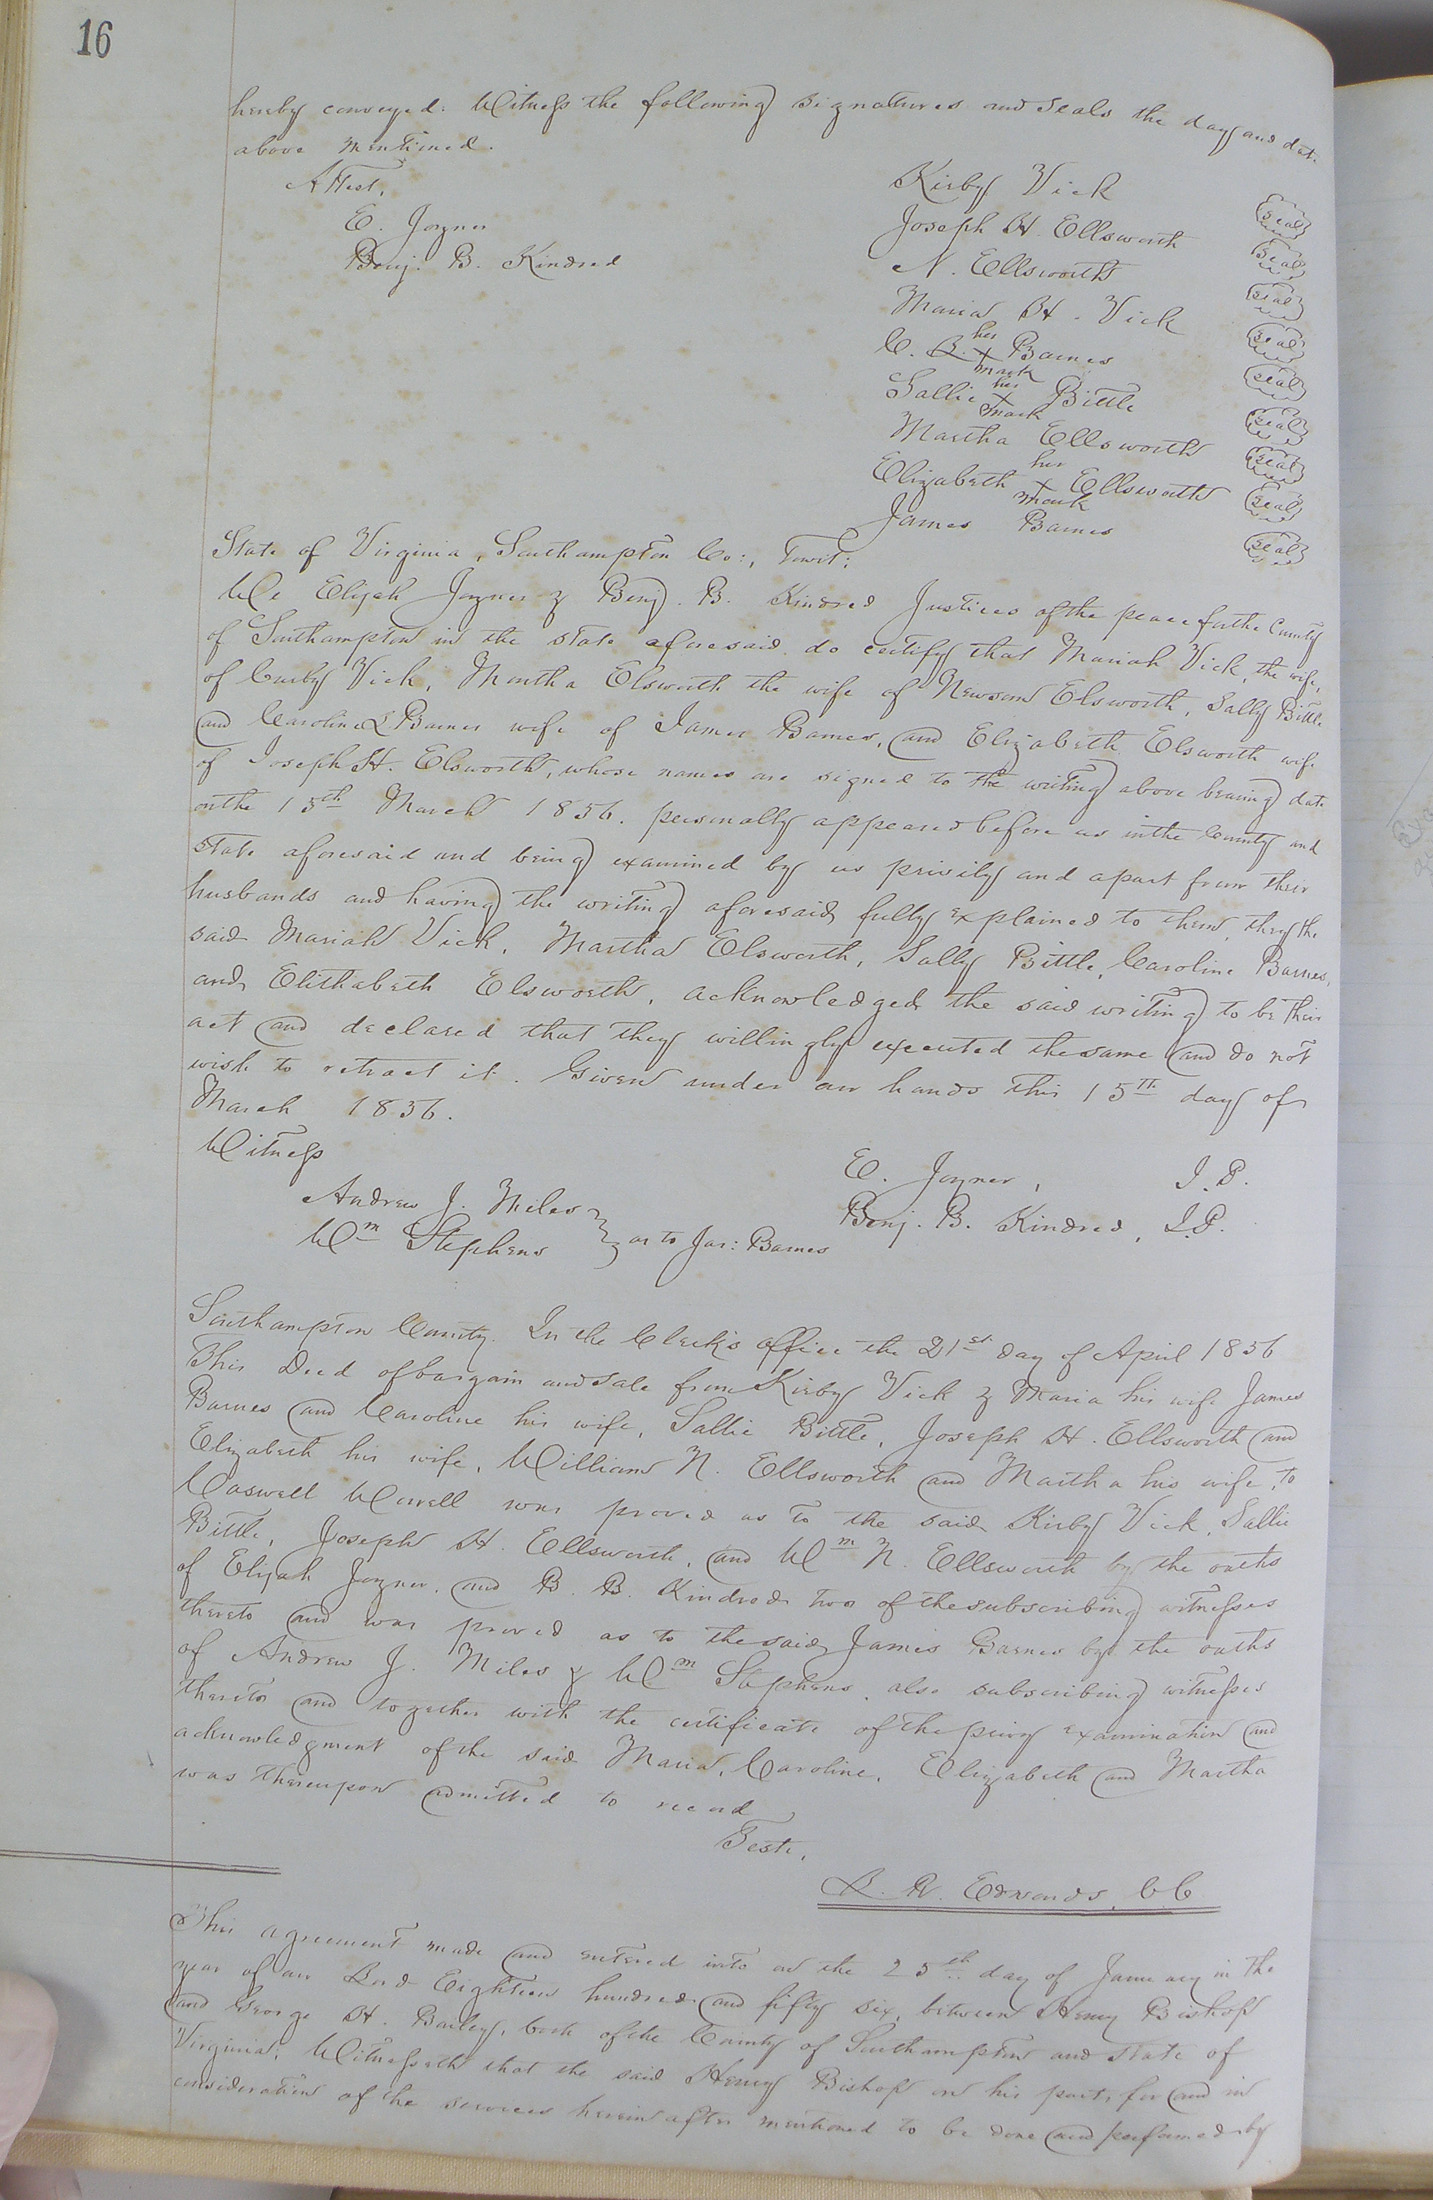 16
hereby conveyed. Witness the following signatures and seals the day and date
above mentioned.
Attest,
E. Joyner
Benj. B. Kindred
Kirby Vick seal
Joseph H. Ellsworth seal
N. Ellsworth seal
Maria H. Vick seal
her
C. R. x Barnes seal
mark
her
Sallie x Bittle seal
mark
Martha Ellsworth seal
her
Elizabeth x Ellsworth seal
mark
James Barnes seal
State of Virginia, Southampton Co:, Towit:
We Elijah Joyner & Benj. B. Kindred Justices of the peace for the County
of Southampton in the state aforesaid do certify that Mariah Vick, the wife,
of Curby Vick, Martha Elsworth the wife of Newsom Elsworth, Sally Bittle
and Caroline L. Barnes wife of James Barnes, and Elizabeth Elsworth wife
of Joseph H. Elsworth, whose names are signed to the writing above bearing date
on the 15th March 1856. personally appeared before us in the County and
state aforesaid and being examined by us privily and apart from their
husbands and having the writing aforesaid fully explained to them, they the
said Mariah Vick, Martha Elsworth, Sally Bittle, Caroline Barnes,
and Elithabeth Elsworth, acknowledged the said writing to be their
act and declared that they willingly executed the same and do not
wish to retract it. Given under our hands this 15th day of
March 1856.
Witness
Andrew J. Miles
Wm Stephens } as to Jas: Barnes
E. Joyner, J. P.
Benj. B. Kindred, J. P.
Southampton County. In the Clerk's office the 21st day of April 1856
This Deed of bargain and sale from Kirby Vick & Maria his wife James
Barnes and Caroline his wife, Sallie Bittle, Joseph H. Ellsworth and
Elizabeth his wife, William N. Ellsworth and Martha his wife, to
Caswell Worrell was proved as to the said Kirby Vick, Sallie
Bittle, Joseph H. Ellsworth, and Wm N. Ellsworth by the oaths
of Elijah Joyner, and B. B. Kindred two of the subscribing witnesses
thereto and was proved as to the said James Barnes by the oaths
of Andrew J. Miles & Wm Stephens, also subscribing witnesses
thereto and together with the certificate of the privy examination and
acknowledgment of the said Maria, Caroline, Elizabeth and Martha
was thereupon admitted to record
Teste,
L. R. Edwards, C C
This agreement made and entered into on the 25th day of January in the
year of our Lord Eighteen hundred and fifty six, between Henry Bishop
and George H. Bailey, both of the County of Southampton and state of
Virginia, Witnesseth that the said Henry Bishop on his part, for and in
consideration of the services herein after mentioned to be done and performed by